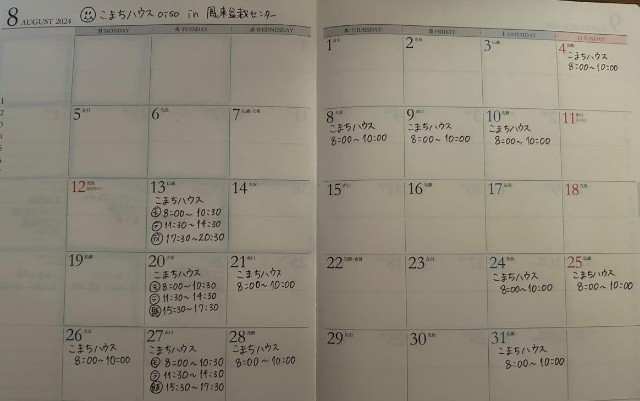 8 AUGUST 2024 こまちハウス OISO in 鳳来盆栽センター
月 MONDAY 火 TUESDAY 水 WEDNESDAY 木 THURSDAY 金 FRIDAY 土 SATURDAY 日 SUNDAY
1 2 3 4
こまちハウス
8:00〜10:00
5 6 7 8 9 10 11
こまちハウス こまちハウス こまちハウス
8:00〜10:00 8:00〜10:00 8:00〜10:00
12 13 14 15 16 17 18
こまちハウス
8:00〜10:30
11:30〜14:30
17:30〜20:30
19 20 21 22 23 24 25
こまちハウス こまちハウス こまちハウス こまちハウス
8:00〜10:30 8:00〜10:00 8:00〜10:00 8:00〜10:00
11:30〜14:30
15:30〜17:30
26 27 28 29 30 31
こまちハウス こまちハウス こまちハウス こまちハウス
8:00〜10:00 8:00〜10:30 8:00〜10:00 8:00〜10:00
11:30〜14:30
15:30〜17:30